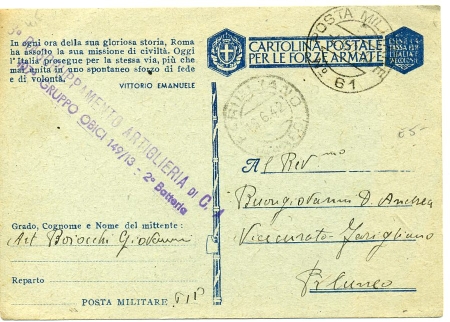 In ogni ora della sua gloriosa storia, Roma
ha assolto la sua missione di civiltà. Oggi
l'Italia prosegue per la stessa via, più che
mai unita in uno spontaneo sforzo di fede
e di volontà.
VITTORIO EMANUELE
CARTOLINA POSTALE
PER LE FORZE ARMATE
POSTA MIL
61
RAGGRUPPAMENTO ARTIGLIERIA DI C. A
GRUPPO OBICI 149/13 - 2ª Batteria
6.42
Al Rev.mo
Buongiovanni D. Andrea
Vicecurato
P. Cuneo
Grado, Cognome e Nome del mittente:
Art Boiocchi Giovanni
Reparto
POSTA MILITARE